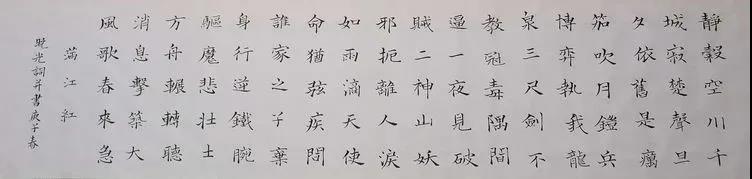 靜縠空川千
城寂楚聲旦
夕依舊是癘
笳吹月鎧兵
博弈執我龍
泉三尺劍不
教冠毒隅間
逼一夜見破
賊二神山妖
邪扼離人淚
如雨滴天使
命猶弦疾問
誰家之子棄
身行逆鐵腕
驅魔悲壯士
方舟輾轉聽
消息擊築大
風歌春來急
滿江紅
曉光詞并書庚子春